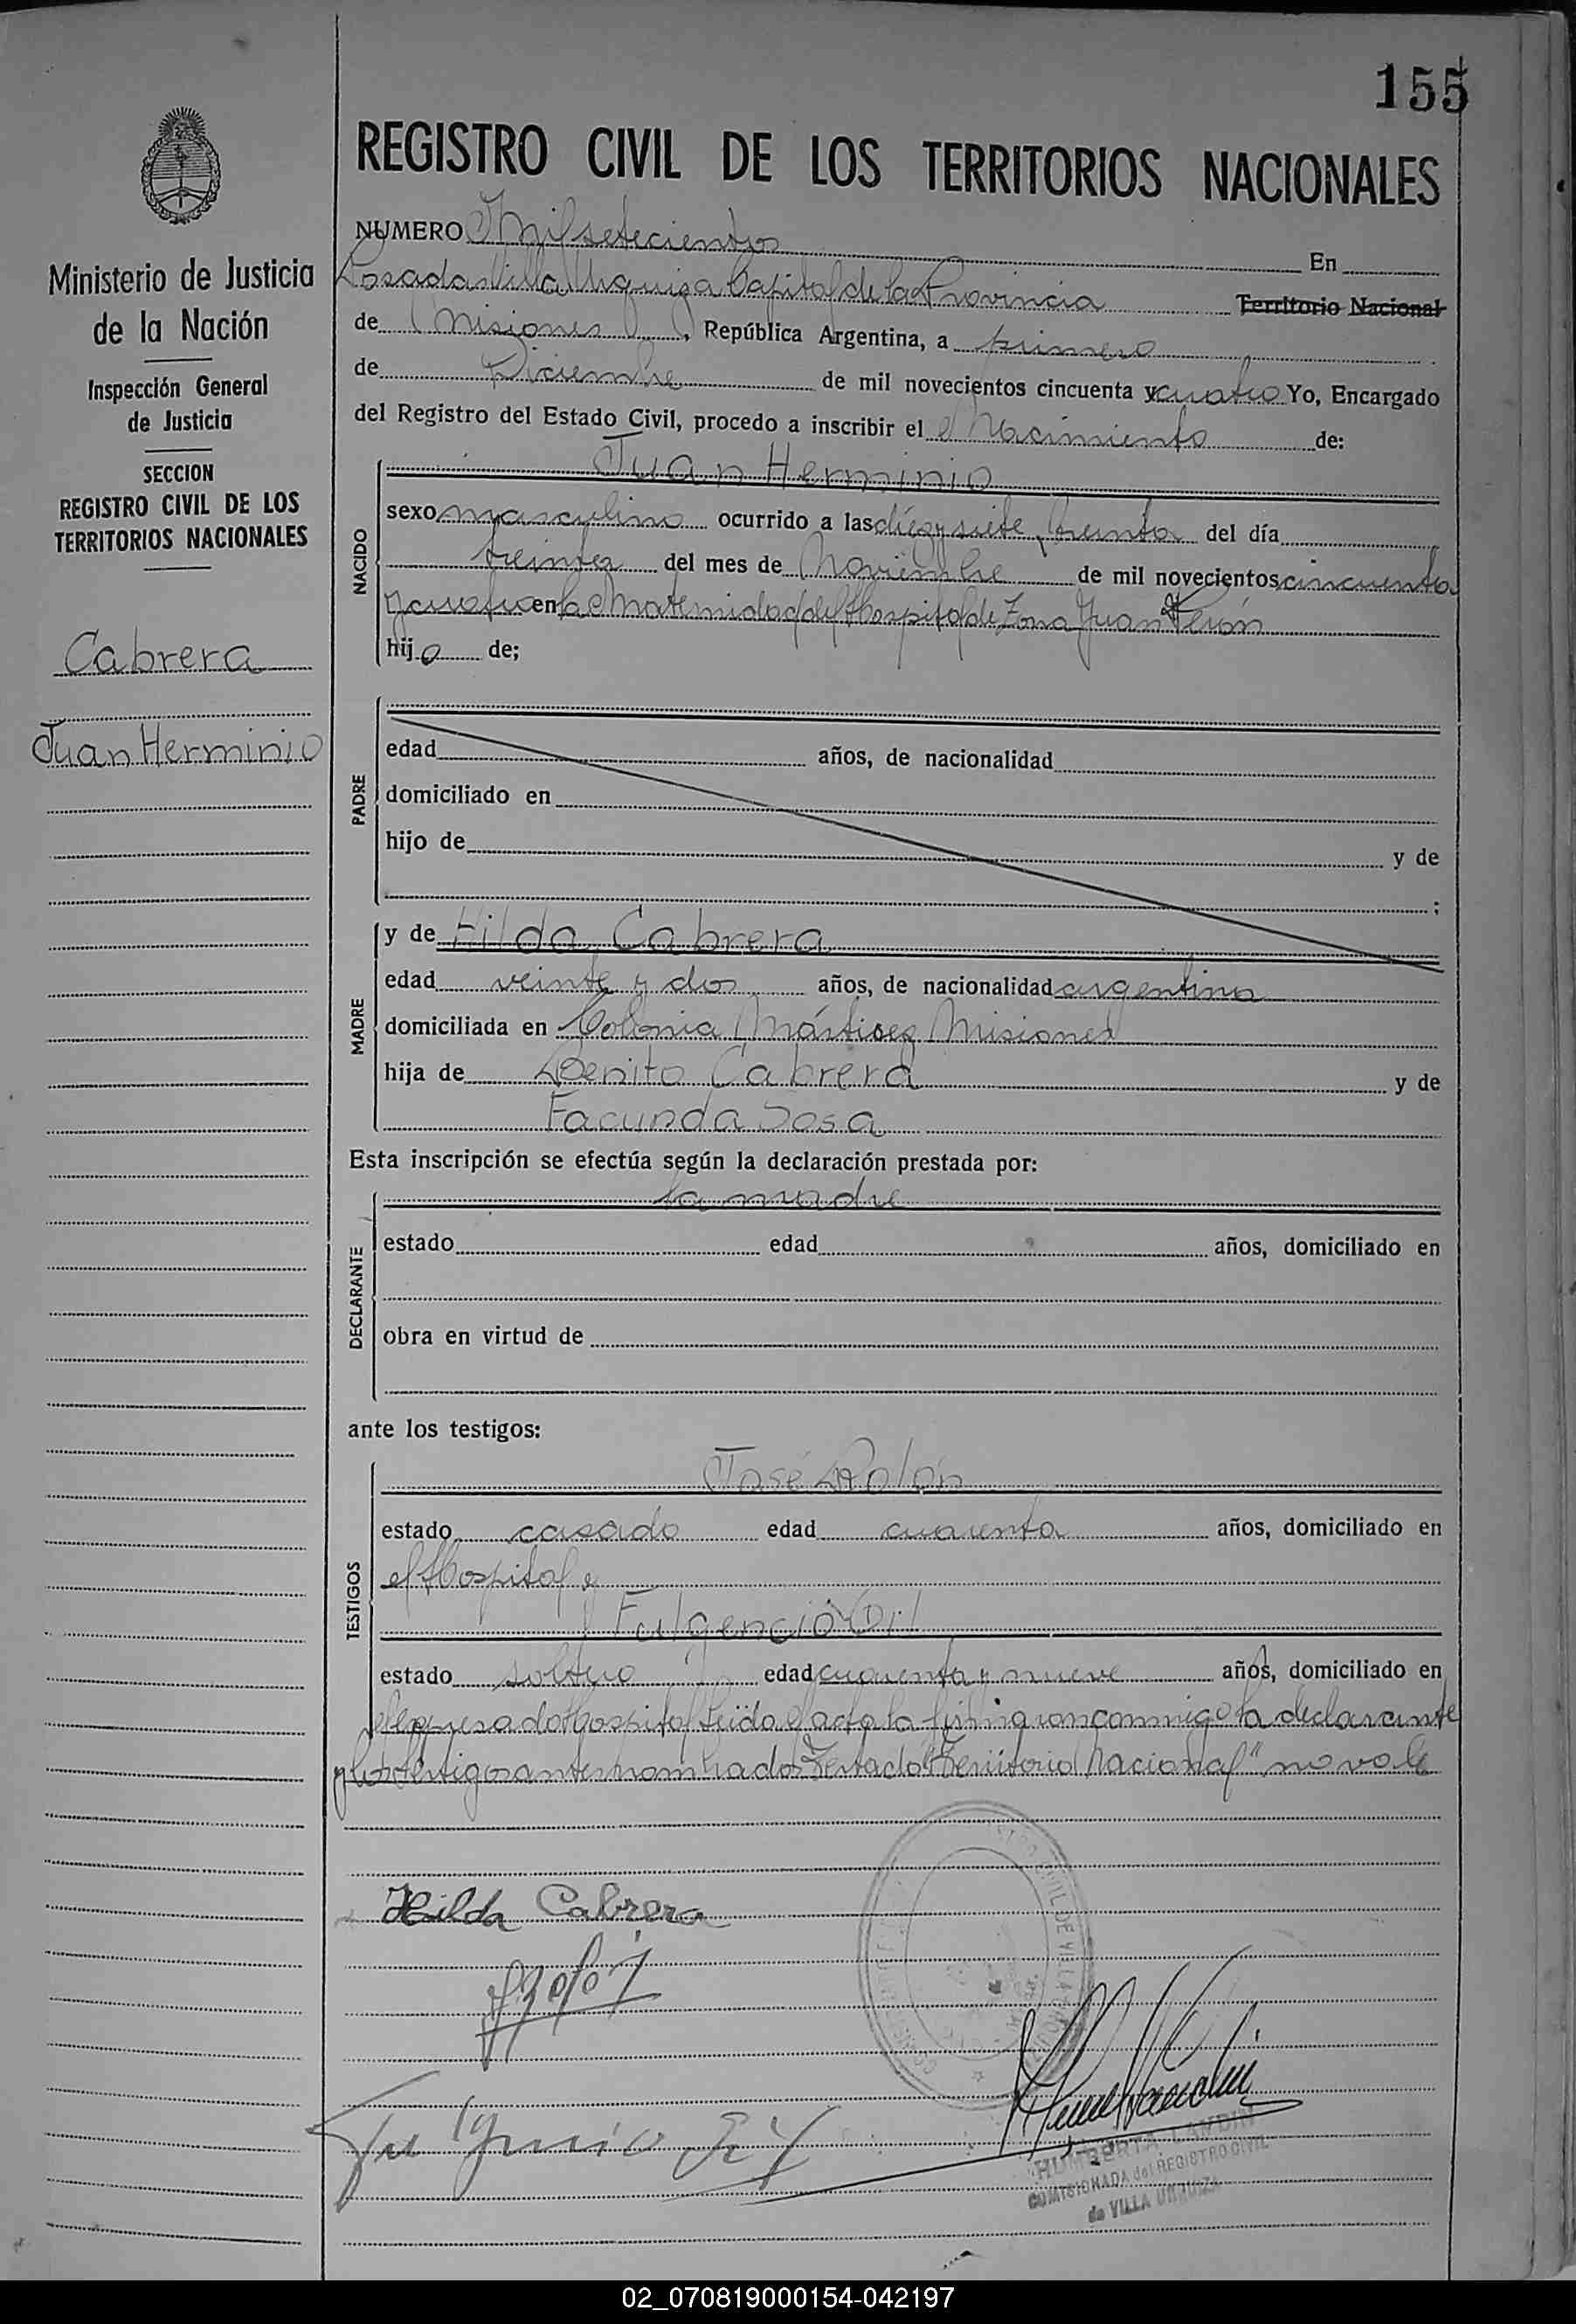 155
REGISTRO CIVIL DE LOS TERRITORIOS NACIONALES
Ministerio de Justicia
de la Nación
Inspección General
de Justicia
SECCION
REGISTRO CIVIL DE LOS
TERRITORIOS NACIONALES
Cabrera
Juan Herminio
NUMERO Mil setecientos En
Posadas Villa Urquiza Capital de la Provincia Territorio Nacional
de Misiones, República Argentina, a primero
de Diciembre de mil novecientos cincuenta y cuatro Yo, Encargado
del Registro del Estado Civil, procedo a inscribir el Nacimiento de:
NACIDO
Juan Herminio
sexo masculino ocurrido a las diez y siete, treinta del día
treinta del mes de Noviembre de mil novecientos cincuenta
y cuatro en la Maternidad del Hospital de Zona Juan Perón
hijo de;
PADRE
edad años, de nacionalidad
domiciliado en
hijo de y de
;
MADRE
y de Hilda Cabrera
edad veinte y dos años, de nacionalidad argentina
domiciliada en Colonia Mártires Misiones
hija de Benito Cabrera y de
Facunda Sosa
Esta inscripción se efectúa según la declaración prestada por:
DECLARANTE
la madre
estado edad años, domiciliado en
obra en virtud de
ante los testigos:
TESTIGOS
José Rolón
estado casado edad cuarenta años, domiciliado en
el Hospital y
Fulgencio Gil
estado soltero edad cuarenta y nueve años, domiciliado en
el expresado Hospital Leída el acta la firmaron conmigo la declarante
y los testigos antes nombrados Testado "Territorio Nacional" no vale
Hilda Cabrera
Fulgencio Gil
HUMBERTA LANDINI
COMISIONADA del REGISTRO CIVIL
de VILLA URQUIZA
02_070819000154-042197